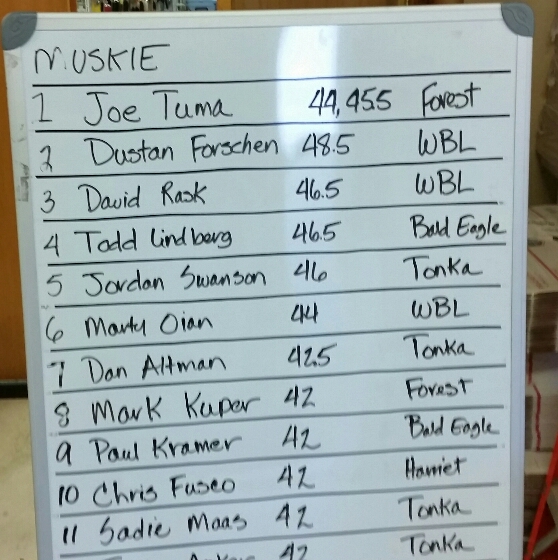 MUSKIE
1 Joe Tuma 44,45.5 Forest
2 Dustan Forschen 48.5 WBL
3 David Rask 46.5 WBL
4 Todd Lindberg 46.5 Bald Eagle
5 Jordan Swanson 46 Tonka
6 Marty Oian 44 WBL
7 Dan Altman 42.5 Tonka
8 Mark Kuper 42 Forest
9 Paul Kramer 42 Bald Eagle
10 Chris Fusco 42 Harriet
11 Sadie Maas 42 Tonka
42 Tonka